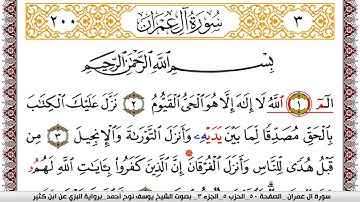 ٣ سُورَةُ آلِ عِمْرَان ٢٠٠
بِسْمِ اللَّهِ الرَّحْمَٰنِ الرَّحِيمِ
الٓمٓ ١ اللَّهُ لَا إِلَٰهَ إِلَّا هُوَ الْحَيُّ الْقَيُّومُ ٢ نَزَّلَ عَلَيْكَ الْكِتَابَ
بِالْحَقِّ مُصَدِّقًا لِمَا بَيْنَ يَدَيْهِۦ وَأَنزَلَ التَّوْرَىٰةَ وَالْإِنجِيلَ ٣ مِن
قَبْلُ هُدًى لِلنَّاسِ وَأَنزَلَ الْفُرْقَانَ إِنَّ الَّذِينَ كَفَرُوا بِـَٔايَاتِ اللَّهِ لَهُمُۥ
سورة آل عمران _ الصفحة ٥٠ _ الحزب ٥ _ الجزء ٣ _ بصوت الشيخ يوسف نوح أحمد _ برواية البزي عن ابن كثير